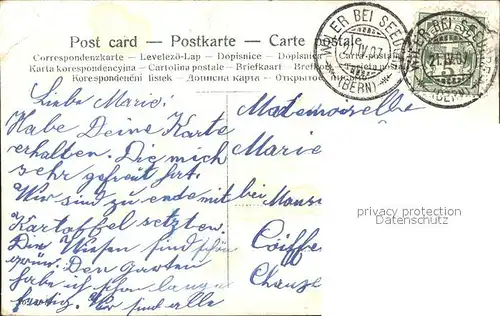 Post card – Postkarte – Carte postale
Correspondenzkarte – Levelező-Lap – Dopisnice – Dopisnica
Karta korespondencyjna – Cartolina postale – Briefkaart – Brefkort
Korespondenční lístek – Дописна карта – Открытое
WILER BEI SEEDORF
21.IV.07
(BERN)
WILER BEI SEEDORF
21.IV.07
(BERN)
Liebe Marie!
Habe Deine Karte
erhalten. Die mich
sehr gefreut hat.
Wir sind zu ende mit
Kartoffel setzten.
Die Wiesen sind schön
grün. Den garten
habe ich schon lange
fertig. Wir sind alle
Matemoiselle
Marie
bei Mons
Coiffe
privacy protection
Datenschutz